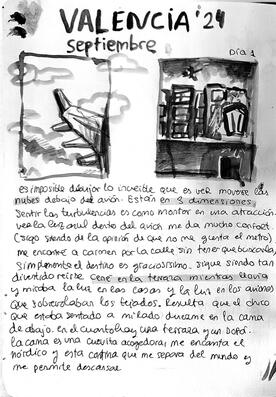 VALENCIA '24
septiembre
Día 1
es imposible dibujar lo increíble que es ver moverse las
nubes debajo del avión. Están en 3 dimensiones.
Sentir las turbulencias es como montar en una atracción.
ver la luz azul dentro del avión me da mucho confort.
(sigo siendo de la opinión de que no me gusta el metro)
me encontré a carmen por la calle sin tener que buscarla,
simplemente el destino es graciosísimo. sigue siendo tan
divertido reírse. Cené en la terraza mientras llovía
y miraba la luz en las casas y la luz en los aviones
que sobrevolaban los tejados. Resulta que el chico
que estaba sentado a mi lado duerme en la cama
de abajo. en el cuarto hay una terraza y un sofá.
la cama es una cuevita acogedora, me encanta el
nórdico y esta cortina que me separa del mundo y
me permite descansar